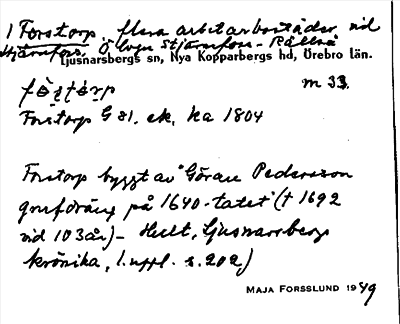 1 Forstorp, flera arbetarbostäder vid
Stjärnfors. Ö. vägen Stjärnfors - Rällså
Ljusnarsbergs sn, Nya Kopparbergs hd, Örebro län.
m 33.
Forstorp G 81. ek. ka 1804
Forstorp byggt av Göran Pedersson
gruvdräng på 1640-talet († 1692
vid 103 år) - Hult, Ljusnarsbergs
krönika, 1. uppl. s. 202)
MAJA FORSSLUND 1949